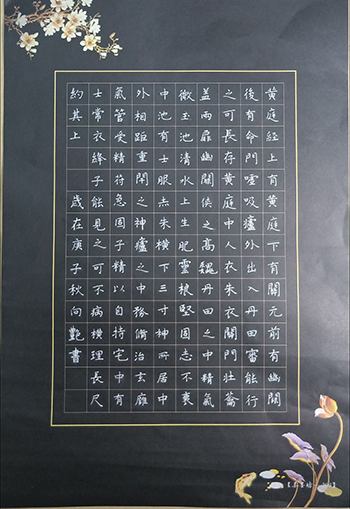 黄庭經上有黄庭下有關元前有幽關
後有命門嘘吸廬外出入丹田審能行
之可長存黄庭中人衣朱衣關門壮籥
盖兩扉幽關俠之高巍丹田之中精氣
微玉池清水上生肥靈根堅固志不衰
中池有士服赤朱横下三寸神所居中
外相距重閉之神廬之中務脩治玄廱
氣管受精符急固子精以自持宅中有
士常衣絳子能見之可不病横理長尺
約其上 歲在庚子秋向艷書